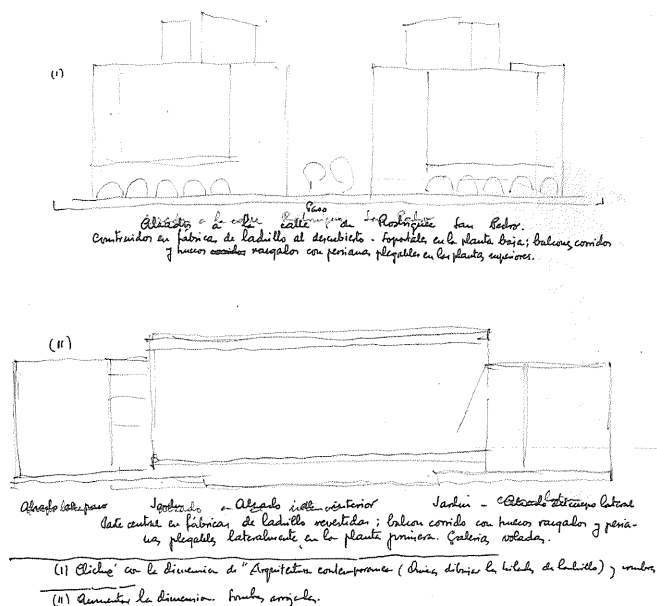 (I)
Paseo
Alzados a la calle de Rodríguez San Pedro.
Construidos en fábricas de ladrillo al descubierto - Soportales en la planta baja; balcones corridos
y huecos rasgados con persianas plegables en las plantas superiores.
(II)
Jardín - Alzado interior Jardín - lateral
Parte central en fábricas de ladrillo revestidas; balcón corrido con huecos rasgados y persia-
nas plegables lateralmente, en la planta primera. Galerías voladas.
(I) Cliché con la dimensión de "Arquitectura contemporánea ( dibujar las hiladas de ladrillo) y sombras
(II) Aumentar la dimensión. Sombras arrojadas.